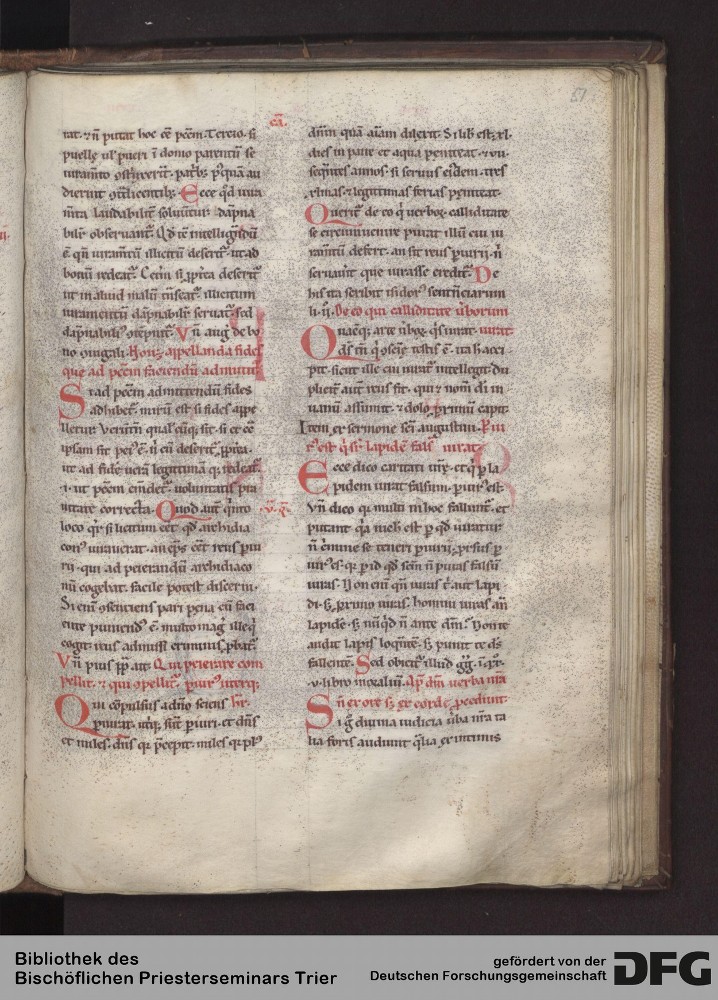 61
cā.
tat. ⁊ n̄ putat hoc eē pccm̄. Tercio. si
puellę uł pueri ī domo parentū se
iuram̄to
dierint Ecce qd̄ iura
m̄ta laudabilit̄ soluūtur. dāpna
bilit̄ obseruant᷑. Qd̄ tn̄ intelligēdū
ē qn̄ iuram̄tū illicitū deserit᷑. ut ad
bonū redeat᷑. Cet̄m si ꝓpt̄ea deserit᷑
ut in aliud malū t̄nseat᷑. illicitum
iuramentū dāpnabilit̄ seruat᷑. sed
dāpnabilī Vn̄ auḡ de bo
no ꝯiugali. Non appellanda fides
que ad pccm̄ faciendū admittit᷑
Si ad pccm̄ admittendū fides
adhibet᷑. mirū est si fides appe
lletur. Verūtn̄ qualiscūq; sit. si et ꝯ̄
ipsam fit peiꝰ ē. n̄ cū deserit᷑ ꝓpt̄ea.
ut ad fidē uerā legitimāq; redeat᷑.
.i. ut pccm̄ em̄det᷑. uoluntatis pra
uitate correcta. Quod aut̄ q̄nto .v. q̄.
loco qr̄. si licitum eet qd̄ archidia
conꝰ iurauerat. an ep̄s eet reus ꝑiu
rii. qui ad peierandū archidiaco
nū cogebat. facile potest discerni.
Si enī ꝯsenciens pari pena cū faci
ente puniendꝰ ē. multo mag̃ ille q̄
cogit. reus admissi criminis ꝓbat᷑.
Vn̄ pius pp̄ ait. Qui peierare com
pellit. ⁊ qui ꝯpellit᷑. ꝑiurꝰ uterq;
Qui cōpulsus a dn̄o sciens
ꝑiurat. ut̄q; sūt ꝑiuri. et dn̄s
et miles. dn̄s qr p̄cepit. miles qr plꝰ
dn̄m quā aīam dilexit. Si lib̄ est. xl.
dies in pane et aqua peniteat. ⁊ vii.
seq̄ntes annos. si seruus eiꝰdem. tres
xlmas. ⁊ legitimas ferias peniteat.
Querit᷑ de eo q̄ uerboꝝ calliditate
se circumuenire putat illū cui iu
ram̄tū defert. an sit reus ꝑiurii. n̄
seruauit que iurasse credit᷑. De
his ita scribit isidorꝰ sentn̄ciarum
li. ii. De eo qui calliditate ūborum iurat.
Quacūq; arte ūboꝝ qs iurat.
Ds tn̄ q̄ ꝯscientię testis ē. ita h acci
pit. sicut ille cui iurat᷑ intellegit. du
plicit̄ aut̄ reus fit. qui ⁊ nom̄ dī in
uanū assumit. ⁊ dolo ꝓximū capit.
Item ex sermone scī augustini. Piu
rꝰ est q̄ sup̄ lapidē falsū iurat.
Ecce dico caritati ur̄ę. et q̄ ꝑ la
pidem iurat falsum. ꝑiurꝰ est.
Vn̄ dico qr multi in hoc fallunt᷑. et
putant qa nich̄ est ꝑ qd̄ iuratur
n̄ crimine se teneri ꝑiurii. ꝓrsus ꝑ
iurꝰ es. qr ꝑ id qd̄ scm̄ n̄ putas falsū
iuras. Non enī qn̄ iuras t̄ aut̄ lapi
di. s; ꝓximo iuras. homini iuras an̄
lapidē. s; nūqd n̄ ante dm̄? Non te
audit lapis loquēte. s; punit te ds
fallente. Sed obicit᷑ illud gg̃. i. xx.
v. libro moraliū. Ap̄ dm̄ uerba nr̄a
n̄ ex ore s; ex corde ꝓcedunt.
Si ḡ diuina iudicia ūba nr̄a ta
lia foris audiunt q̄lia ex intimis
Bibliothek des
Bischöflichen Priesterseminars Trier
gefördert von der
Deutschen Forschungsgemeinschaft DFG